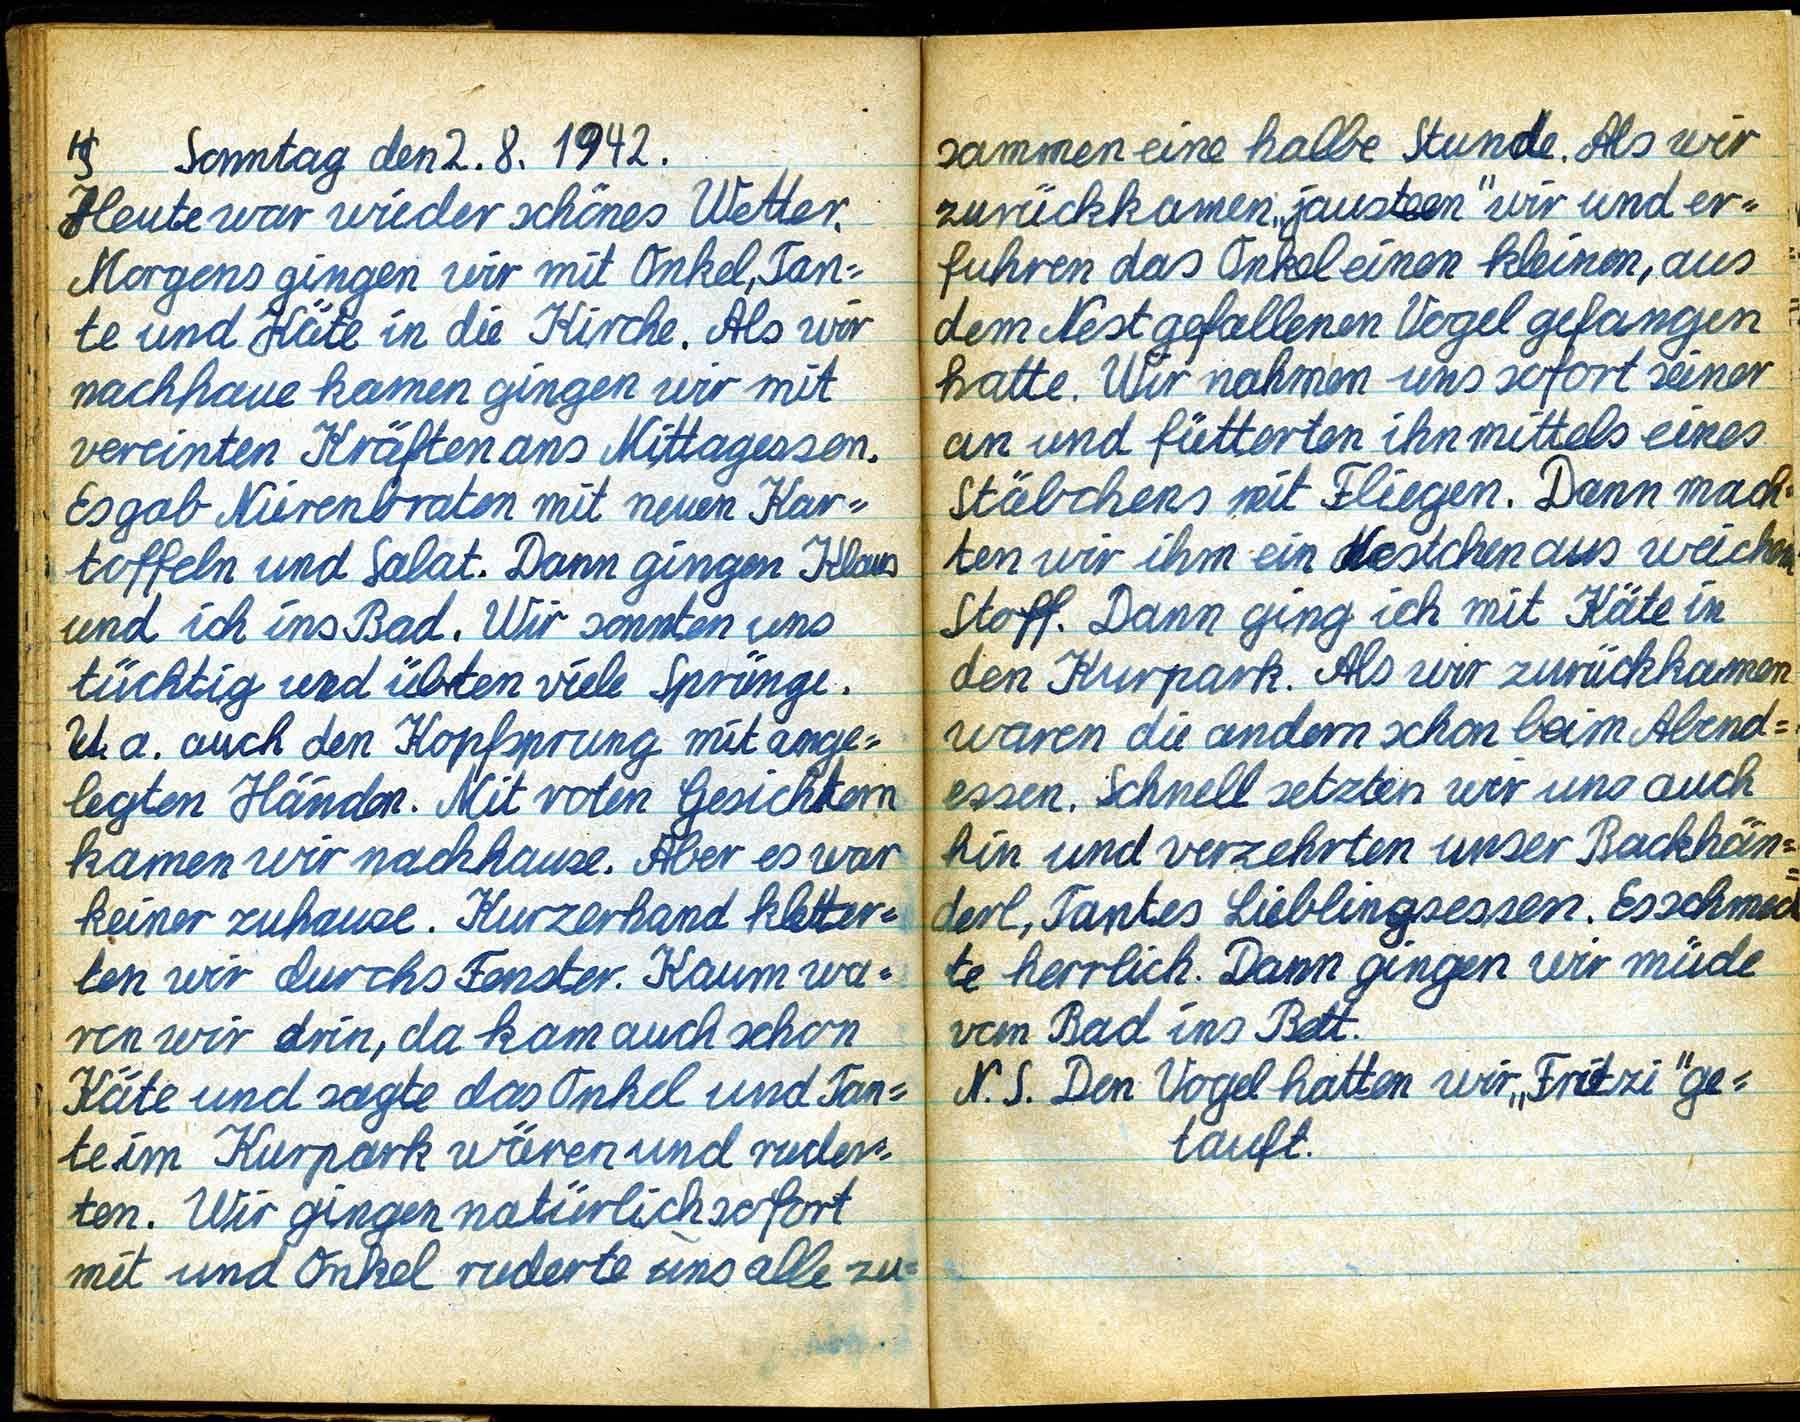 Sonntag den 2. 8. 1942.
Heute war wieder schönes Wetter.
Morgens gingen wir mit Onkel, Tan=
te und Käte in die Kirche. Als wir
nachhaue kamen gingen wir mit
vereinten Kräften ans Mittagessen.
Es gab Nierenbraten mit neuen Kar=
toffeln und Salat. Dann gingen Klaus
und ich ins Bad. Wir sonnten uns
tüchtig und übten viele Sprünge.
U. a. auch den Kopfsprung mit ange=
legten Händen. Mit roten Gesichtern
kamen wir nachhause. Aber es war
keiner zuhause. Kurzerhand kletter=
ten wir durchs Fenster. Kaum wa=
ren wir drin, da kam auch schon
Käte und sagte das Onkel und Tan=
te im Kurpark wären und ruder=
ten. Wir gingen natürlich sofort
mit und Onkel ruderte uns alle zu=
sammen eine halbe Stunde. Als wir
zurückkamen „jausteen" wir und er=
fuhren das Onkel einen kleinen, aus
dem Nest gefallenen Vogel gefangen
hatte. Wir nahmen uns sofort seiner
an und fütterten ihn mittels eines
Stäbchens mit Fliegen. Dann mach=
ten wir ihm ein Nestchen aus weichem
Stoff. Dann ging ich mit Käte in
den Kurpark. Als wir zurückkamen
waren die andern schon beim Abend=
essen. Schnell setzten wir uns auch
hin und verzehrten unser Backhän=
derl, Tantes Lieblingsessen. Es schmeck
te herrlich. Dann gingen wir müde
vom Bad ins Bett.
N. S. Den Vogel hatten wir „Fritzi" ge=
tauft.